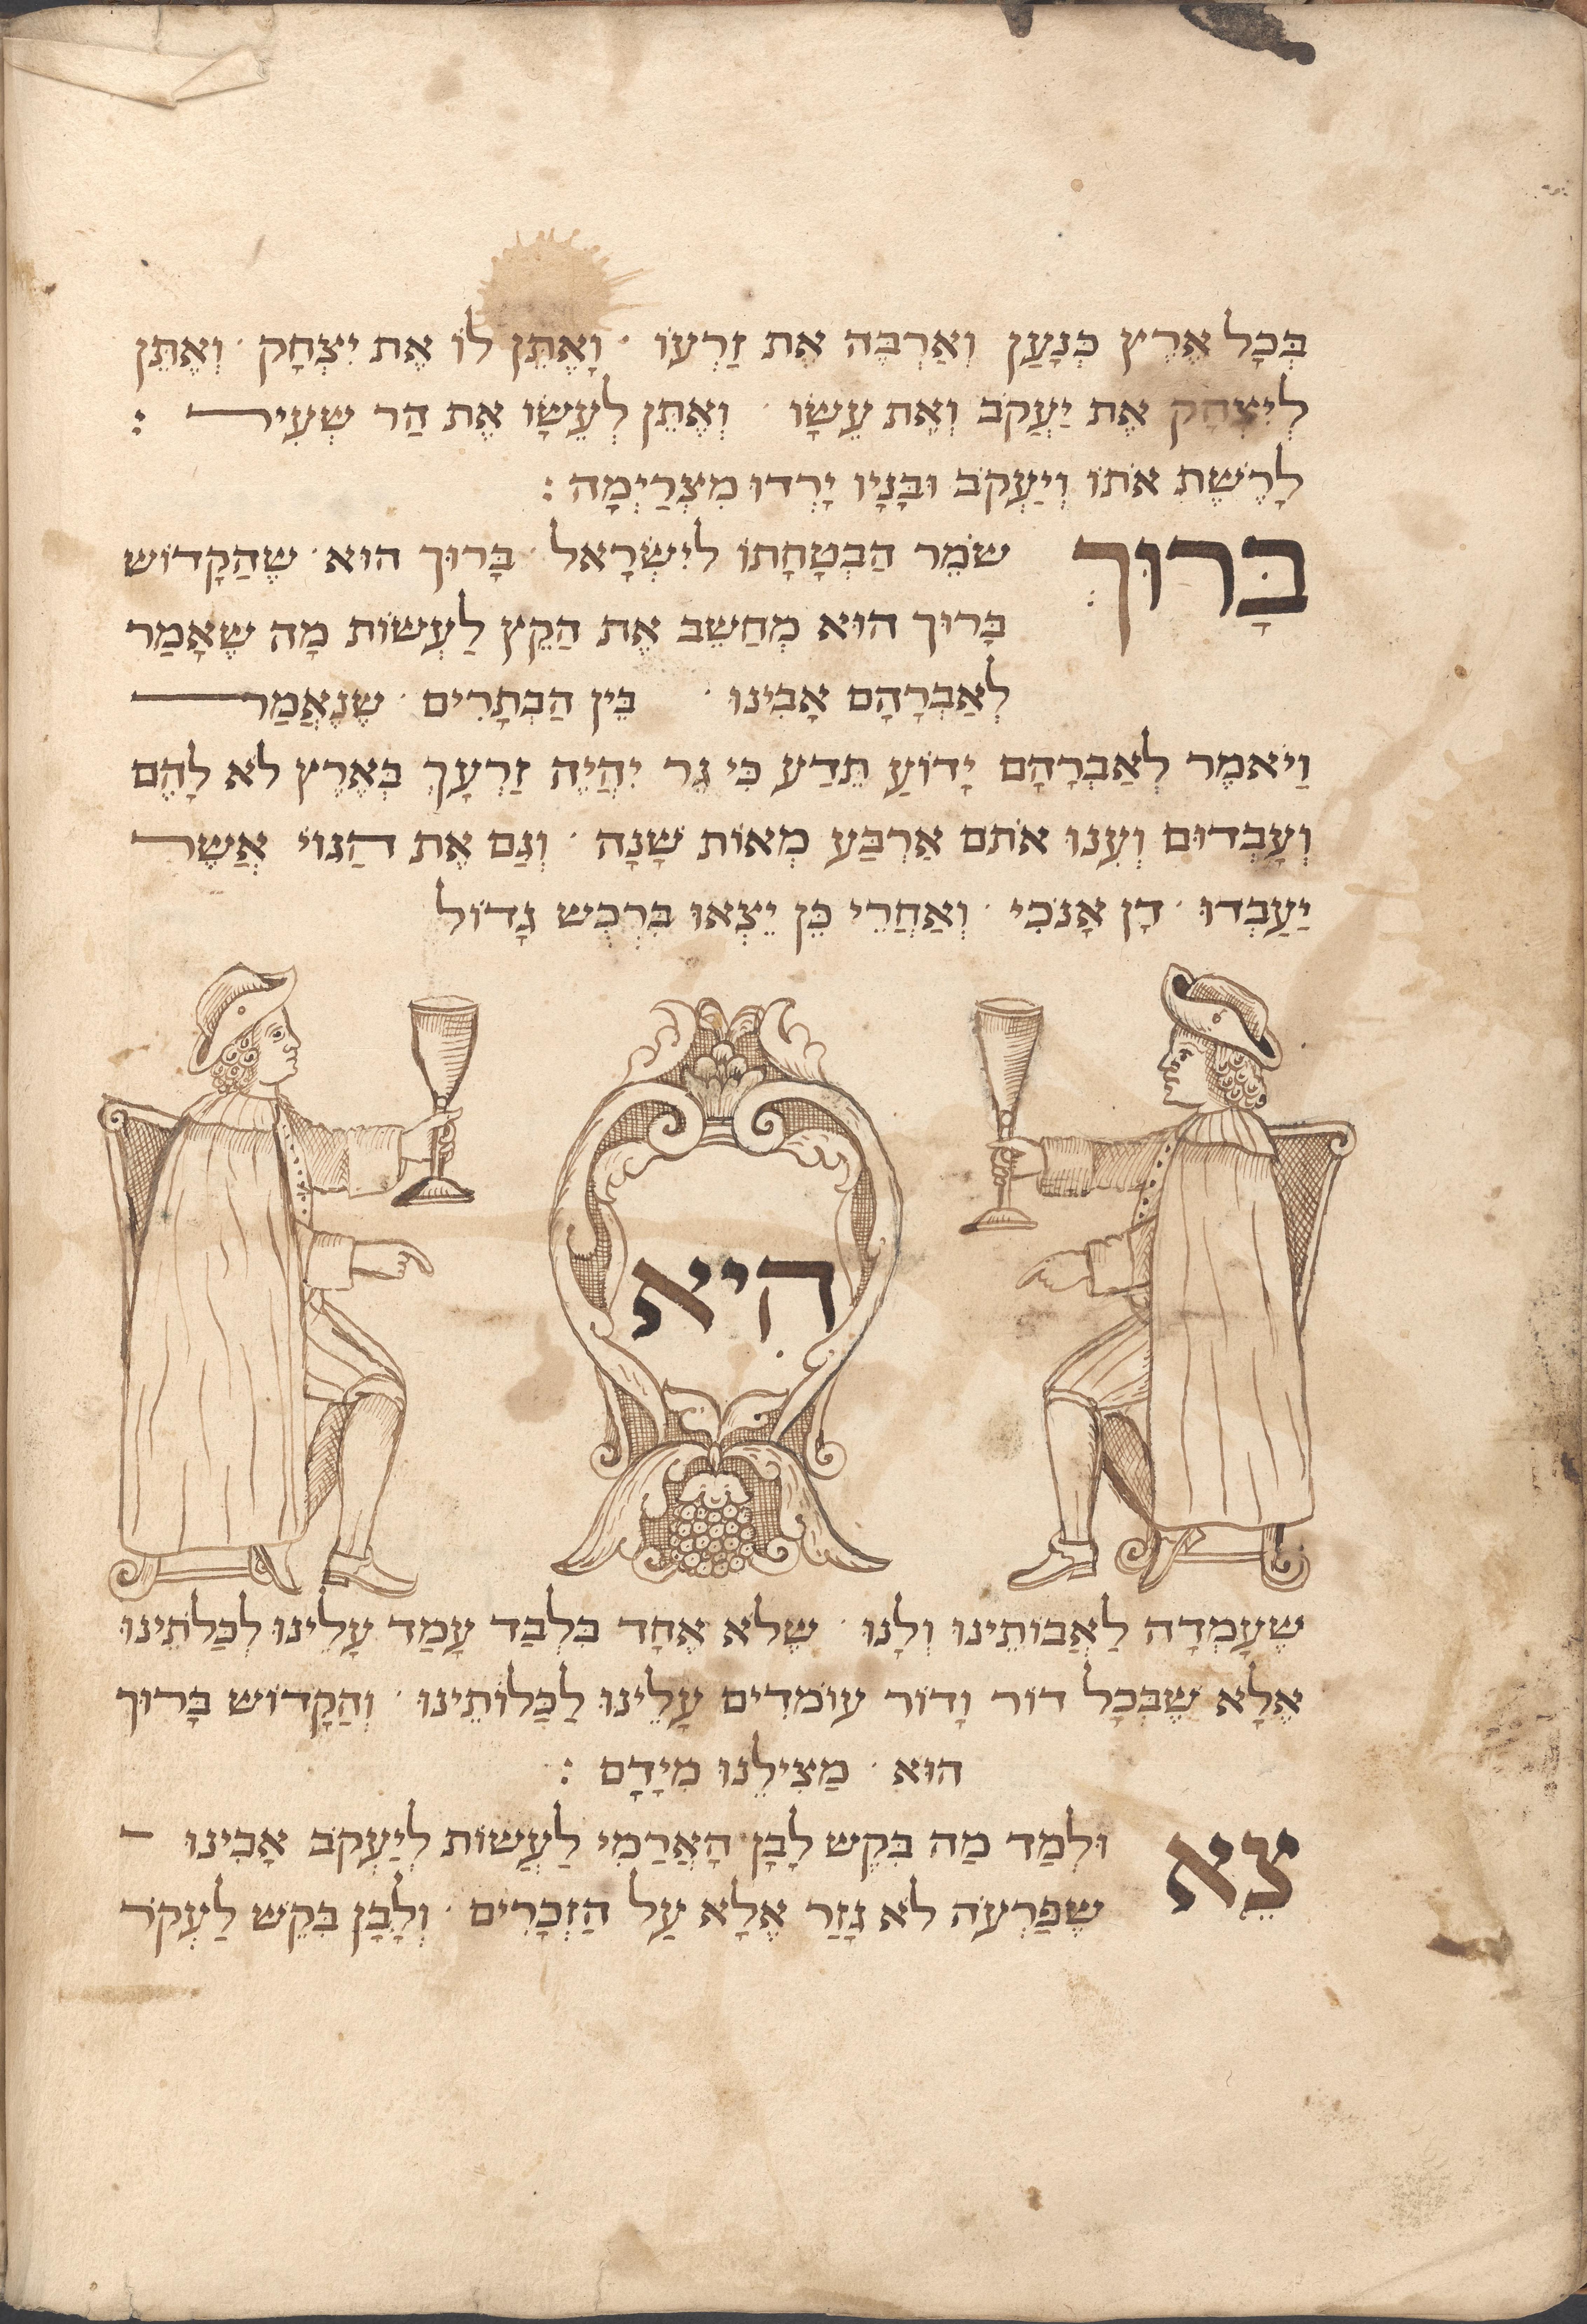 בְּכָל אֶרֶץ כְּנָעַן וְאַרְבֶּה אֶת זַרְעוֹ · וָאֶתֵּן לוֹ אֶת יִצְחָק · וְאֶתֵּן
לְיִצְחָק אֶת יַעֲקֹב וְאֵת עֵשָׂו · וְאֶתֵּן לְעֵשָׂו אֶת הַר שְׂעִיר :
לָרֶשֶׁת אֹתוֹ וְיַעְקֹב וּבָּנָיו יָרְדוּ מִצְרַיְמָה :
בָּרוּךְ שֹׁמֵר הַבְטָחָתוֹ לְיִשְׂרָאֵל · בָּרוּךְ הוּא · שֶׁהַקָדוֹשׁ
בָּרוּךְ הוּא מְחַשֵּׁב אֶת הַקֵץ לַעְשׂוֹת מָה שֶׁאָמַר
לְאַבְרָהָם אָבִינוּ · בֵּין הַבְּתָרִים · שֶׁנֶאֱמַר
וַיֹאמֶר לְאַבְרָהָם יָדוֹעַ תֵּדַע כִּי גֵר יִהֲיֶה זַרְעָךְ בְּאֶרֶץ לֹא לָהֶם
וְעָבְדוּם וְעִנּוּ אֹתָם אַרְבַּע מְאוֹת שָׁנָה · וְגַם אֶת הַגּוֹי אֲשֶׁר
יַעֲבְדוּ · דָן אָנֹכִי · וְאַחֲרֵי כֵּן יֵצְאוּ בִּרְכֻשׁ גָדוֹל
הִיא
שֶׁעָמְדָה לַאֲבוֹתֵינוּ וְלָנוּ · שֶׁלֹא אֶחָד בִּלְבַד עָמַד עָלֵינוּ לְכַּלֹתֵינוּ
אֶלָא שֶׁבְּכָל דוֹר וָדוֹר עוֹמְדִים עָלֵינוּ לְכַּלוֹתֵינוּ · וְהַקָדוֹשׁ בָּרוּךְ
הוּא · מַצִילֵנוּ מִיָדָם :
צֵא וּלְמַד מַה בִּקֵשׁ לָבָן הָאֲרַמִי לַעֲשׂוֹת לְיַעְקֹב אָבִינוּ
שֶׁפַּרְעֹה לֹא גָזַר אֶלָא עַל הַזְכָרִים · וְלָבָן בִּקֵשׁ לַעְקֹר